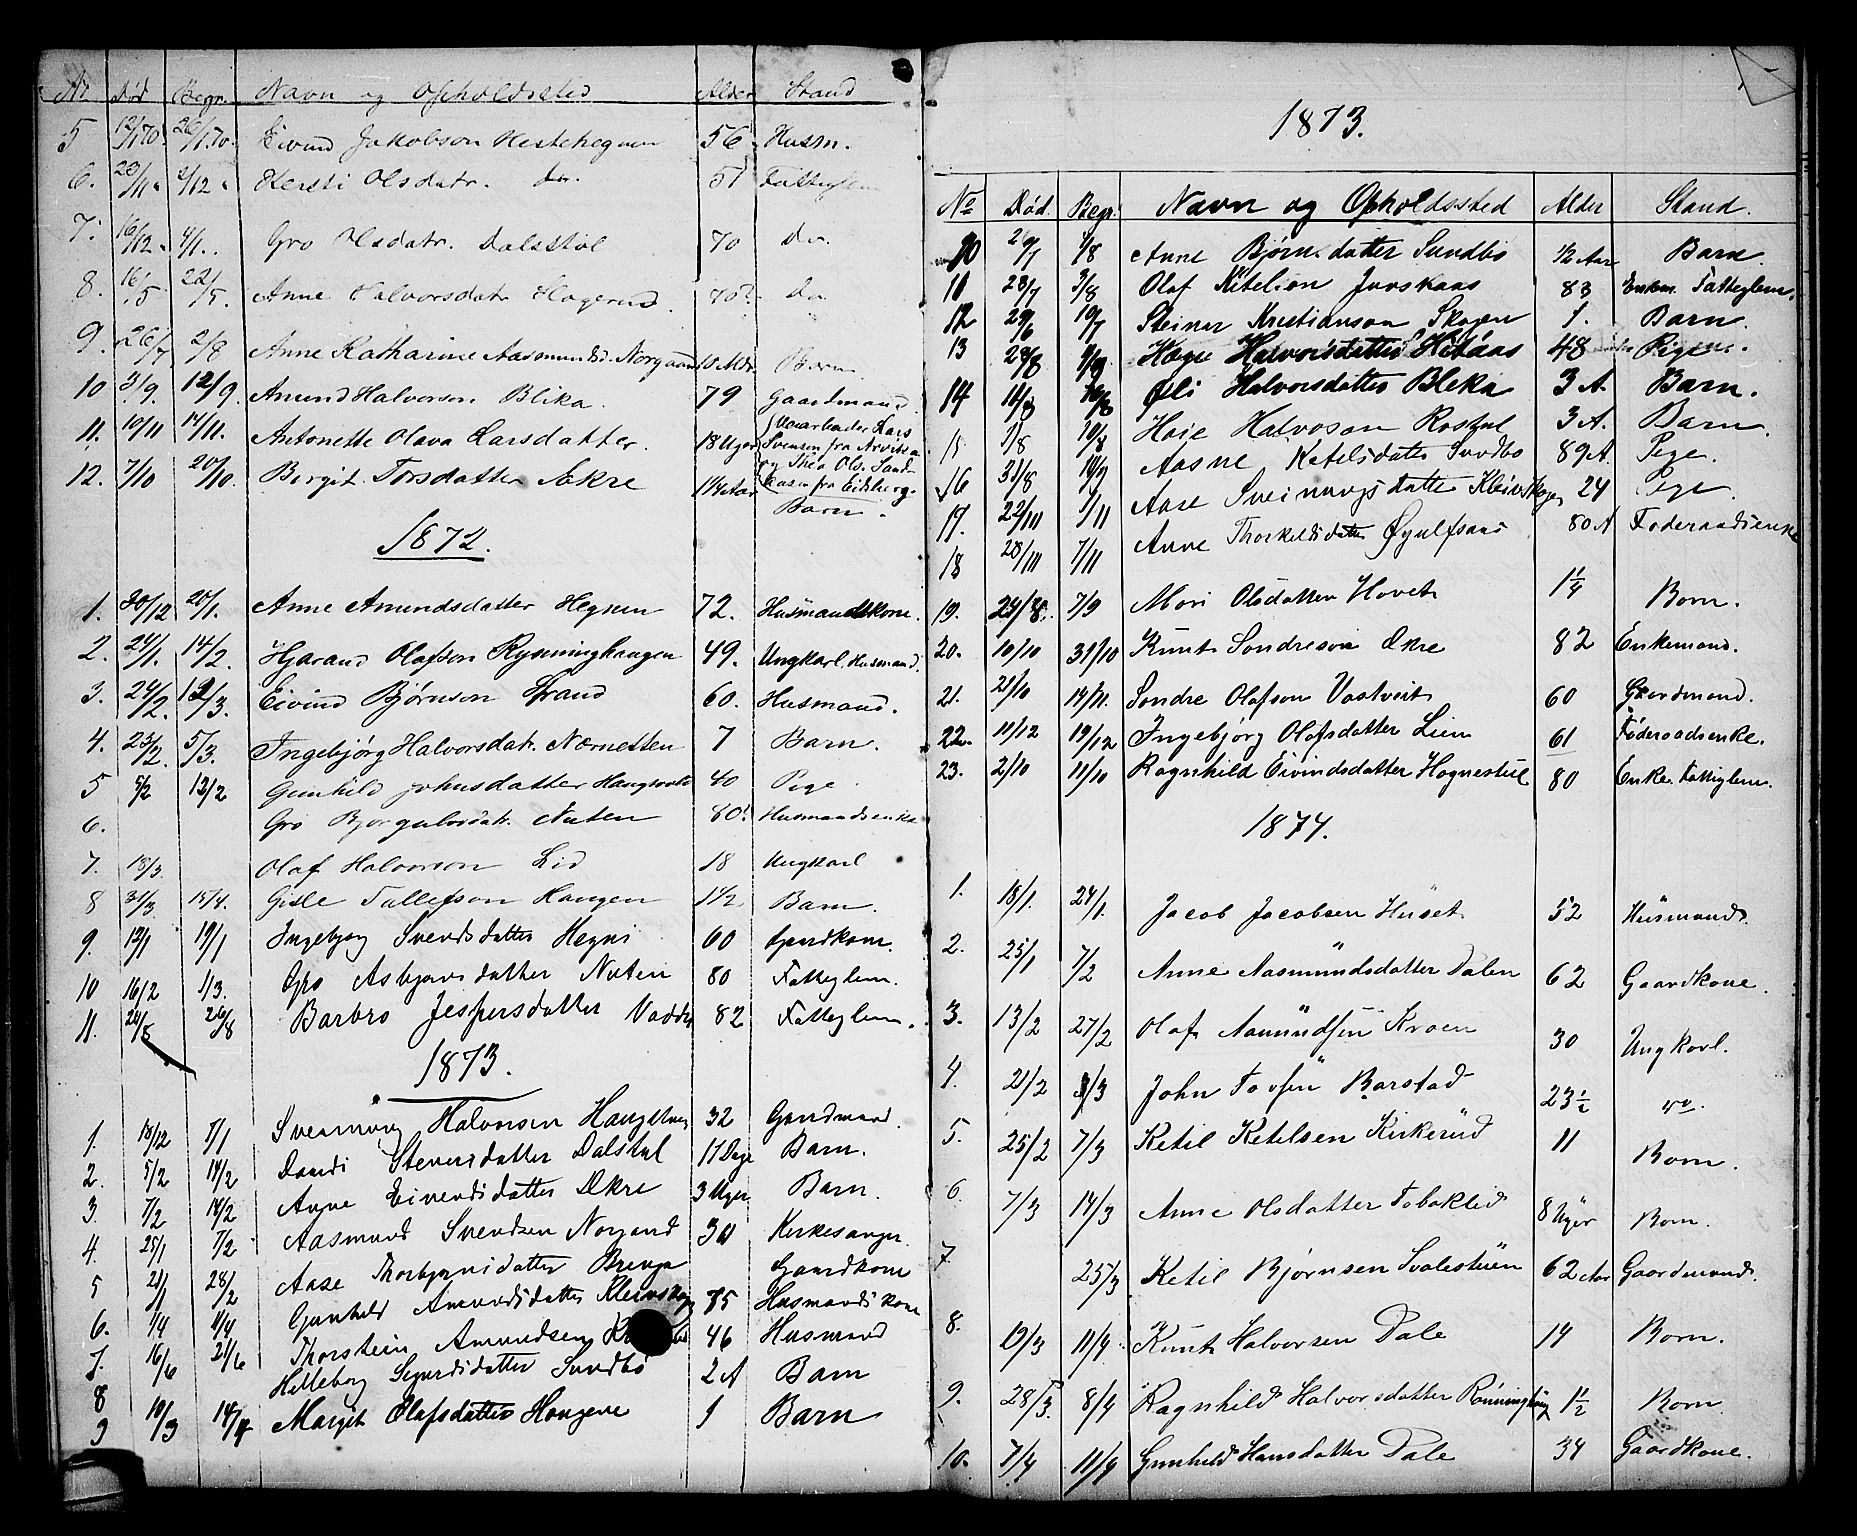 No Død Begr. Navn og Opholdssted Alder Stand
5 12/1 70. 26/1.70. Eivind Jakobson Hestehegnen 56 Husm.
6. 23/11 " 2/12 " Kersti Olsdatr. do. 51 Fatteglem
7. 16/12 " 4/1.. Gro Olsdatr. Dalsstöl 70 do.
8. 16/5 22/5. Anne Halvorsdatr Hogerud. 70? do
9. 26/7 2/8 Anne Katharine Aasmundsd. Norgaard 10 Mdr. Barn
10 3/9. 12/9. Amund Halvorson Blika. 79 Gaardmand.
11. 10/11 14/11. Antonette Olava Larsdatter. 18 Uger Lars
Svensen fra
og Thea Ols.
fra Eidsberg.
12. 7/10 20/10. Birgit Torsdatter Ækre 14 Aar Barn.
1872.
1. 30/12 20/1. Anne Amundsdatter Hegnen 72. Husmandskone.
2. 24/1. 14/2. Hjarand Olafson Rynninghaugen 49. Ungkarl. Husmand.
3. 24/2. 12/3. Eivind Bjørnson Strand 60. Husmand.
4. 23/2. 5/3. Ingebjörg Halvorsdatr. Nørnetten 7 Barn.
5 5/2 12/2 Gunhild Johnsdatter 40 Pige
6. Gro Bjorgulvsdatr. Nuten 80? Husmandsenke
7. 18/3. Olaf Halvorson Lid 18 Ungkarl
8 31/3. 15/4. Gisle Tallefson Haugen 1 1/2 Barn.
9. 12/1 19/1 Ingebjog Svendsdatter Hegni 60 Gardkone.
10 16/2 1/3. Gro Asbjornsdatter Nuten 80 Fatteglem.
11. 24/8 26/8 Barbro Jespersdatter 82 Fatteglem.
1873.
1. 18/12 7/1 Sveinung Halvorsen 32 Gardmand.
2. 5/2 14/2 Stevensdatter Dalstul 17 Dage Barn.
3. 7/2 14/2 Anne Eivendsdatter Økre 3 Uger Barn.
4. 25/1 7/2 Aasmund Svendsen Norgard 30 Kirkesanger.
5 21/1 28/2 Aase Thorbjornsdatter Gaardkone
6. 1/4 4/4 Gunhild Amundsdatter Kleivskogen 75 Husmandskone
7. 16/6 21/6 Thorstein Amundsen 46 Husmand
8 Helleborg Segurdsdatter Sundbö 2 A Barn
9 19/3 14/4 Margit Olafsdatter Haugene 1 Barn
1873.
No Död. Begr. Navn og Opholdssted Alder Stand.
10 26/7 1/8 Anne Bjørnsdatter Sundbö 1/2 Aar Barn.
11 23/7 3/8 Olaf Ketelson Juvskaas 83 Enkem. Fatteglem.
12 29/6 19/7 Steinar Kristianson Skogen 1. Barn.
13 Hæge Halvorsdatter 48 Pige.
14 11/8 16/8 Øli Halvorsdatter Bleka 3 A. Barn.
15 1/8 10/8 Hoie Halvoson Rostul 3 A. Barn.
16 31/8 Aasne Ketelsdatter Sundbo 89 A. Pige.
17. 22/10 1/11 Aase Sveinungsdatter Kleivskogen 24 Pige.
18 28/10 7/11 Anne Thorkeldsdatter Øyulfsaas 80 A Foderaadsenke
19. 24/8. 7/9 Mari Olsdatter Hovet 1 1/4 Barn.
20. 10/10 31/10 Knut Sondreson Økre 82 Enkemand.
21. 21/10 14/11. Sondre Olafson Vastveit 60 Gaardmand.
22. 11/12 19/12 Ingebjörg Olafsdatter Lien 61 Föderaadsenke.
23. 2/10 11/10 Ragnhild Eivindsdatter Hognestul 80 Enke. Fattiglem.
1874.
1. 18/1. 24/1. Jacob Jacobsen Huset 52 Husmand.
2. 25/1 7/2 Anne Aasmundsdatter Dalen 62 Gaardkone.
3. 13/2 27/2 Olaf Aamundsen Kroen 30 Ungkarl.
4. 21/2 3/3 John Tovsen Barstad 23 1/2 do.
5. 25/2 7/3 Ketil Ketelsen Kirkerud 11 Barn.
6. 7/3 14/3 Anne Olsdatter Tobaklid 8 Uger Barn.
7. 25/3 Ketil Bjørnsen Svalestuen 62 Aar Gaardmand.
8. 19/3 11/4 Knut Halvorsen Dale 14 Barn.
9. 28/3. 8/4 Ragnhild Halvorsdatter Rønninghaug 1 1/2 Barn.
10. 7/4 11/4 Gunhild Hansdatter Dale 34 Gaardkone.